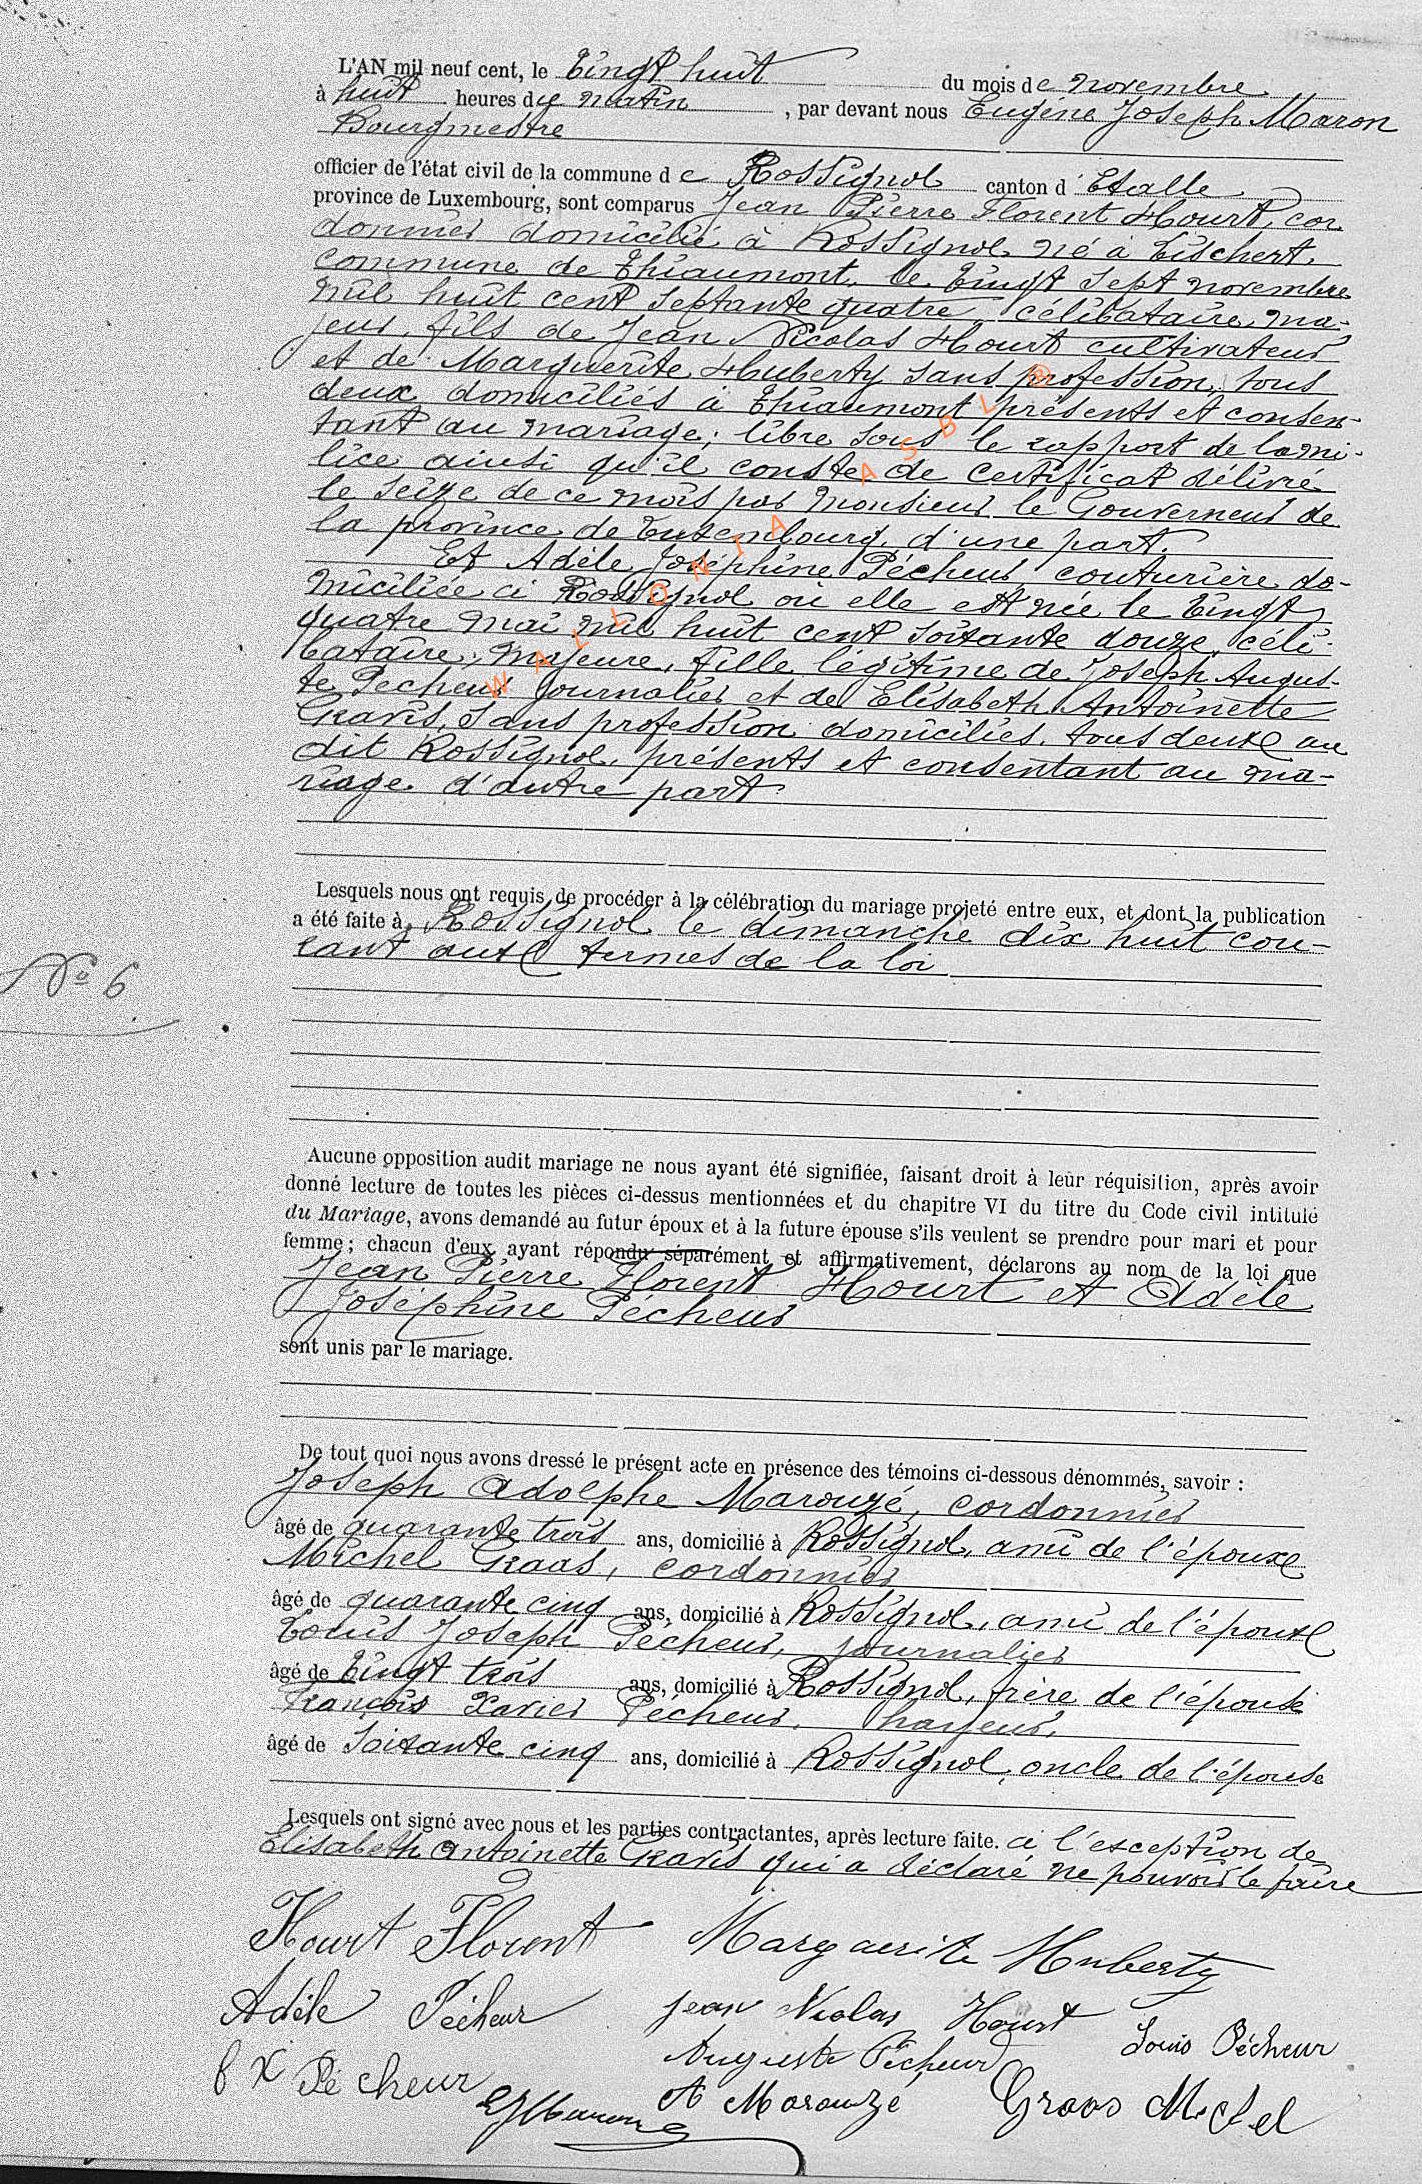 L'AN mil neuf cent, le Vingt huit du mois de novembre
à huit heures du matin, par devant nous Eugéne Joseph Maron
Bourgmestre
officier de l'état civil de la commune de Rossignol canton d'Etalle
province de Luxembourg, sont comparus Jean Pierre Florent Hourt, cor
donnier domicilié à Rossignol né à Lischert
commune de Thiaumont, le Vingt sept novembre
mil huit cent septante quatre, célibataire, ma-
jeur, fils de Jean Nicolas Hourt cultivateur
et de Marguerite Huberty sans profession, tous
deux domiciliés à Thiaumont présents et consen-
tant au mariage; libre sous le rapport de la mi-
lice ainsi qu'il conste de certificat délivré
le seize de ce mois par Monsieur le Gouverneur de
la province de Luxembourg, d'une part.
Et Adèle Joséphine Pécheur, couturière do-
miciliée à Rossignol où elle est née le Vingt
quatre mai mil huit cent soixante douze, céli-
bataire, majeure, fille légitime de Joseph Augus-
te Pecheur journalier et de Elisabeth Antoinette
Gravis, sans profession domiciliés tous deux au
dit Rossignol, présents et consentant au ma-
riage d'autre part
WALLONIA ASBL ®
Lesquels nous ont requis de procéder à la célébration du mariage projeté entre eux, et dont la publication
a été faite à Rossignol le dimanche dix huit cou-
rant aux termes de la loi
No 6
Aucune opposition audit mariage ne nous ayant été signifiée, faisant droit à leur réquisition, après avoir
donné lecture de toutes les pièces ci-dessus mentionnées et du chapitre VI du titre du Code civil intitulé
du Mariage, avons demandé au futur époux et à la future épouse s'ils veulent se prendre pour mari et pour
femme; chacun d'eux ayant répondu séparément et affirmativement, déclarons au nom de la loi que
Jean Pierre Florent Hourt et Adèle
Joséphine Pécheur
sont unis par le mariage.
De tout quoi nous avons dressé le présent acte en présence des témoins ci-dessous dénommés, savoir :
Joseph Adolphe Marouzé, cordonnier
âgé de quarante trois ans, domicilié à Rossignol, ami de l'époux
Michel Graas, cordonnier
âgé de quarante cinq ans, domicilié à Rossignol, ami de l'époux
Louis Joseph Pécheur, journalier
âgé de Vingt trois ans, domicilié à Rossignol, frère de l'épouse
François Xavier Pécheur,
âgé de soixante cinq ans, domicilié à Rossignol, oncle de l'épouse
Lesquels ont signé avec nous et les parties contractantes, après lecture faite. à l'exception de
Elisabeth Antoinette Gravis qui a déclaré ne pouvoir le faire
Hourt Florent Marguerite Huberty
Adèle Pécheur Jean Nicolas Hourt Louis Pécheur
f X Pécheur Auguste Pécheur
EJMaron A Marouzé Graas Michel